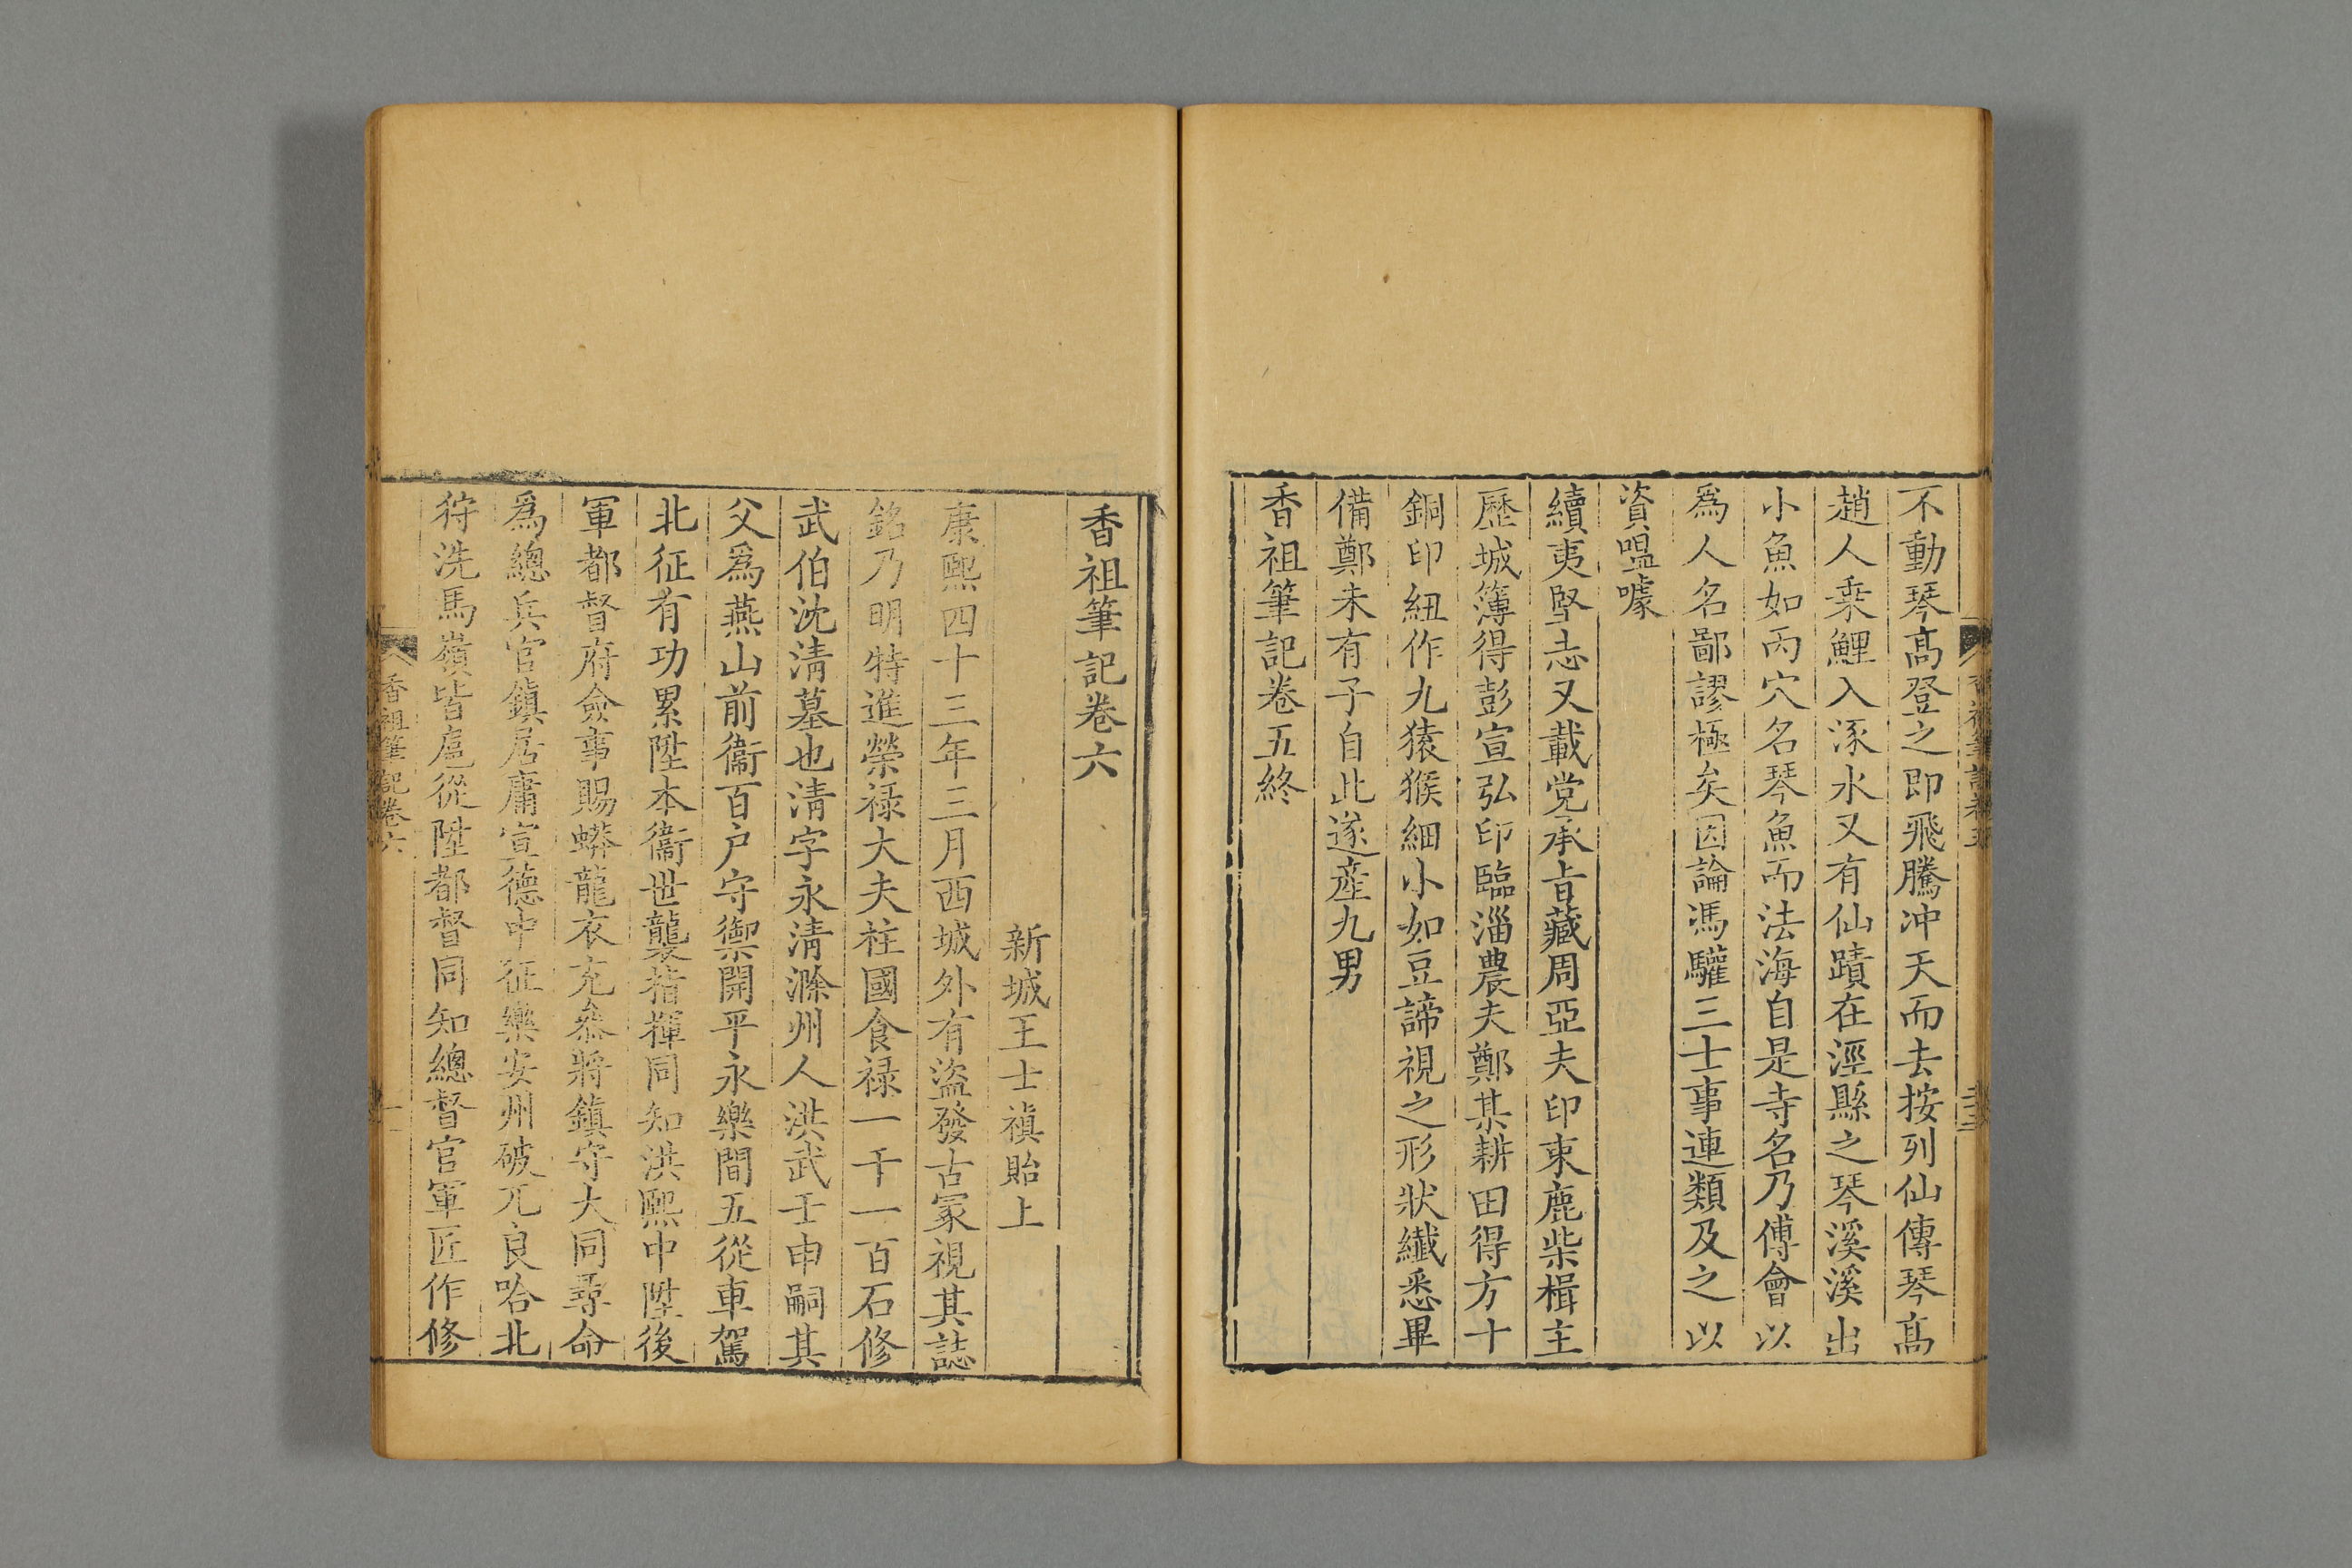 不動琴高登之即飛騰冲天而去按列仙傳琴高
趙人乘鯉入涿水又有仙蹟在涇縣之琴溪溪出
小魚如丙穴名琴魚而法海自是寺名乃傅會以
爲人名鄙謬極矣因論馮驩三士事連類及之以
資嗢噱
續夷堅志又載党承旨藏周亞夫印束鹿柴楫主
歷城簿得彭宣弘印臨淄農夫鄭某耕田得方十
銅印紐作九猿猴細小如豆諦視之形狀纎悉畢
備鄭未有子自此遂產九男
香祖筆記卷五終
香祖筆記卷六
新城王士禛貽上
康熙四十三年三月西城外有盜發古冢視其誌
銘乃明特進榮禄大夫柱國食禄一千一百石修
武伯沈淸墓也淸字永淸滁州人洪武壬申嗣其
父爲燕山前衞百户守禦開平永樂間五從車駕
北征有功累陞本衞世襲指揮同知洪熙中陞後
軍都督府僉事賜蟒龍衣充叅將鎭守大同尋命
爲總兵官鎭居庸宣德中征樂安州破兀良哈北
狩洗馬嶺皆扈從陞都督同知總督官軍匠作修
香祖筆記卷六
一